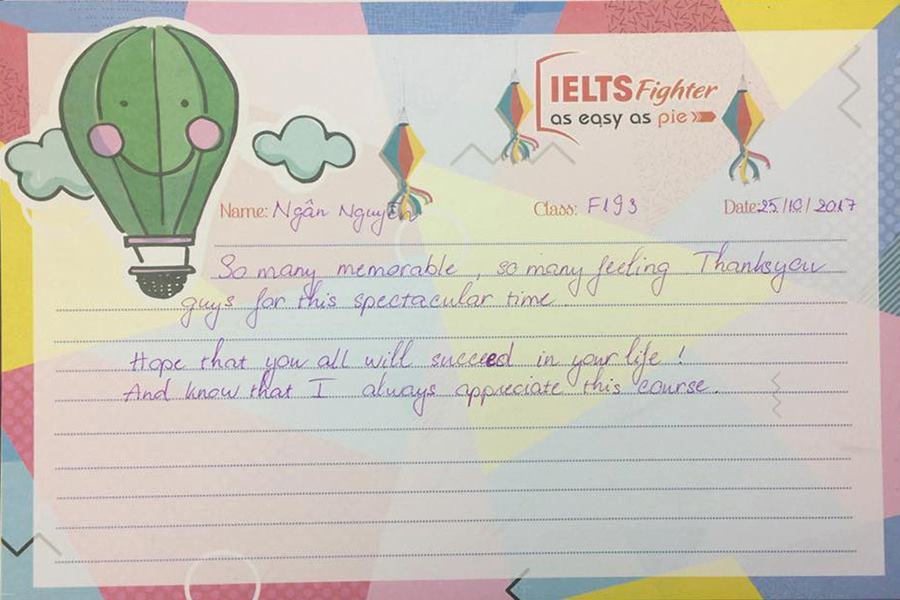 IELTS Fighter
as easy as pie
Name: Ngân Nguyễn Class: F193 Date: 25/10/2017
So many memorable, so many feeling. Thanks you
guys for this spectacular time.
Hope that you all will succeed in your life !
And know that I always appreciate this course.